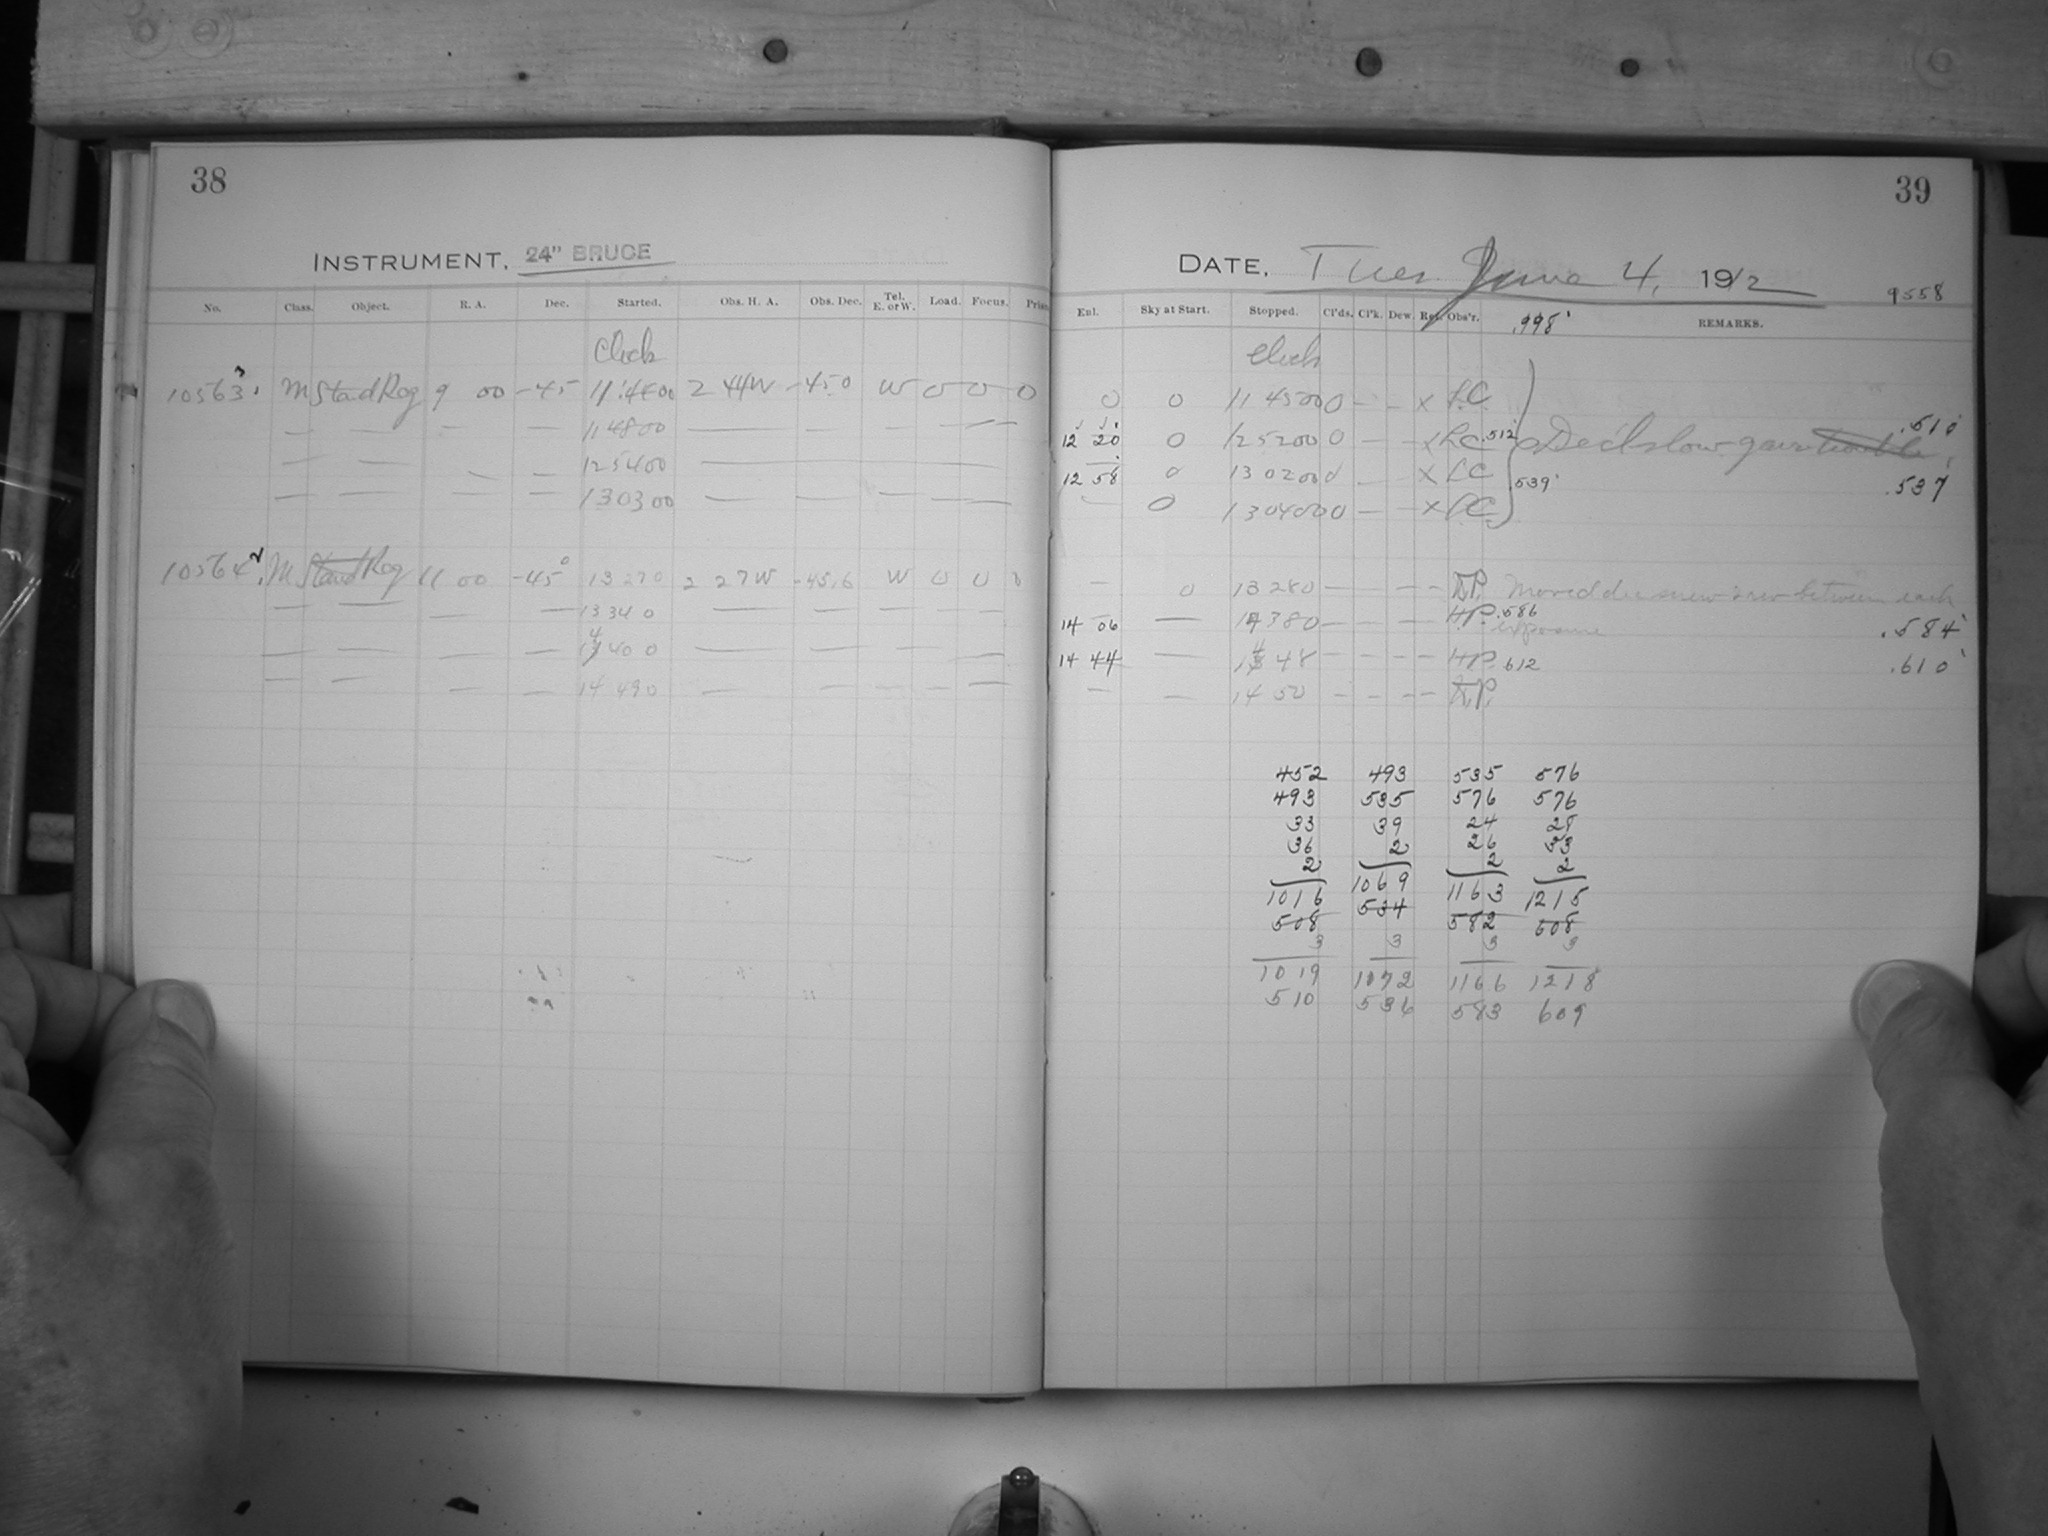 38
INSTRUMENT, 24" BRUCE
No. Class. Object. R. A. Dec. Started. Obs. H. A. Obs. Dec. Tel. E. or W. Load. Focus.
Clock
10563 3 M Stand Reg 9 00 -45 11 4400 2 44W -45.0 W 0 0 0
— — — — 11 4800 — — — — —
— — — — 12 5400 — — — — —
— — — — 13 0300 — — — — —
10564 2 M Stand Reg 11 00 -45° 13 270 2 27W -45.6 W 0 0 0
— — — — 13 34 0 — — — — —
— — — — 14 40 0 — — — — —
— — — — 14 49 0 — — — — —
39
DATE, Tues June 4, 1912
9558
Enl. Sky at Start. Stopped. Cl'ds. Cl'k. Dew. Obs'r. .998' REMARKS.
Clock
0 0 11 4500 0 — — x L.C.
12 20 0 12 5200 0 — — x L.C. .512' Dec'l slow gain .510'
12 58 0 13 0200 0 — — x L.C. .539' .537'
— 0 13 0400 0 — — x L.C.
— 0 13 280 — — — H.P. Moved dec screw between each
14 06 — 380 — — — H.P. .586 exposure .584'
14 44 — 14 48 — — — H.P. .612 .610'
— — 14 50 — — — H.P.
452 493 535 576
493 535 576 576
33 39 24 28
36 2 26 33
2 2 2
1016 1069 1163 1215
508 534 582 608
3 3 3 3
1019 1072 1166 1218
510 536 583 609